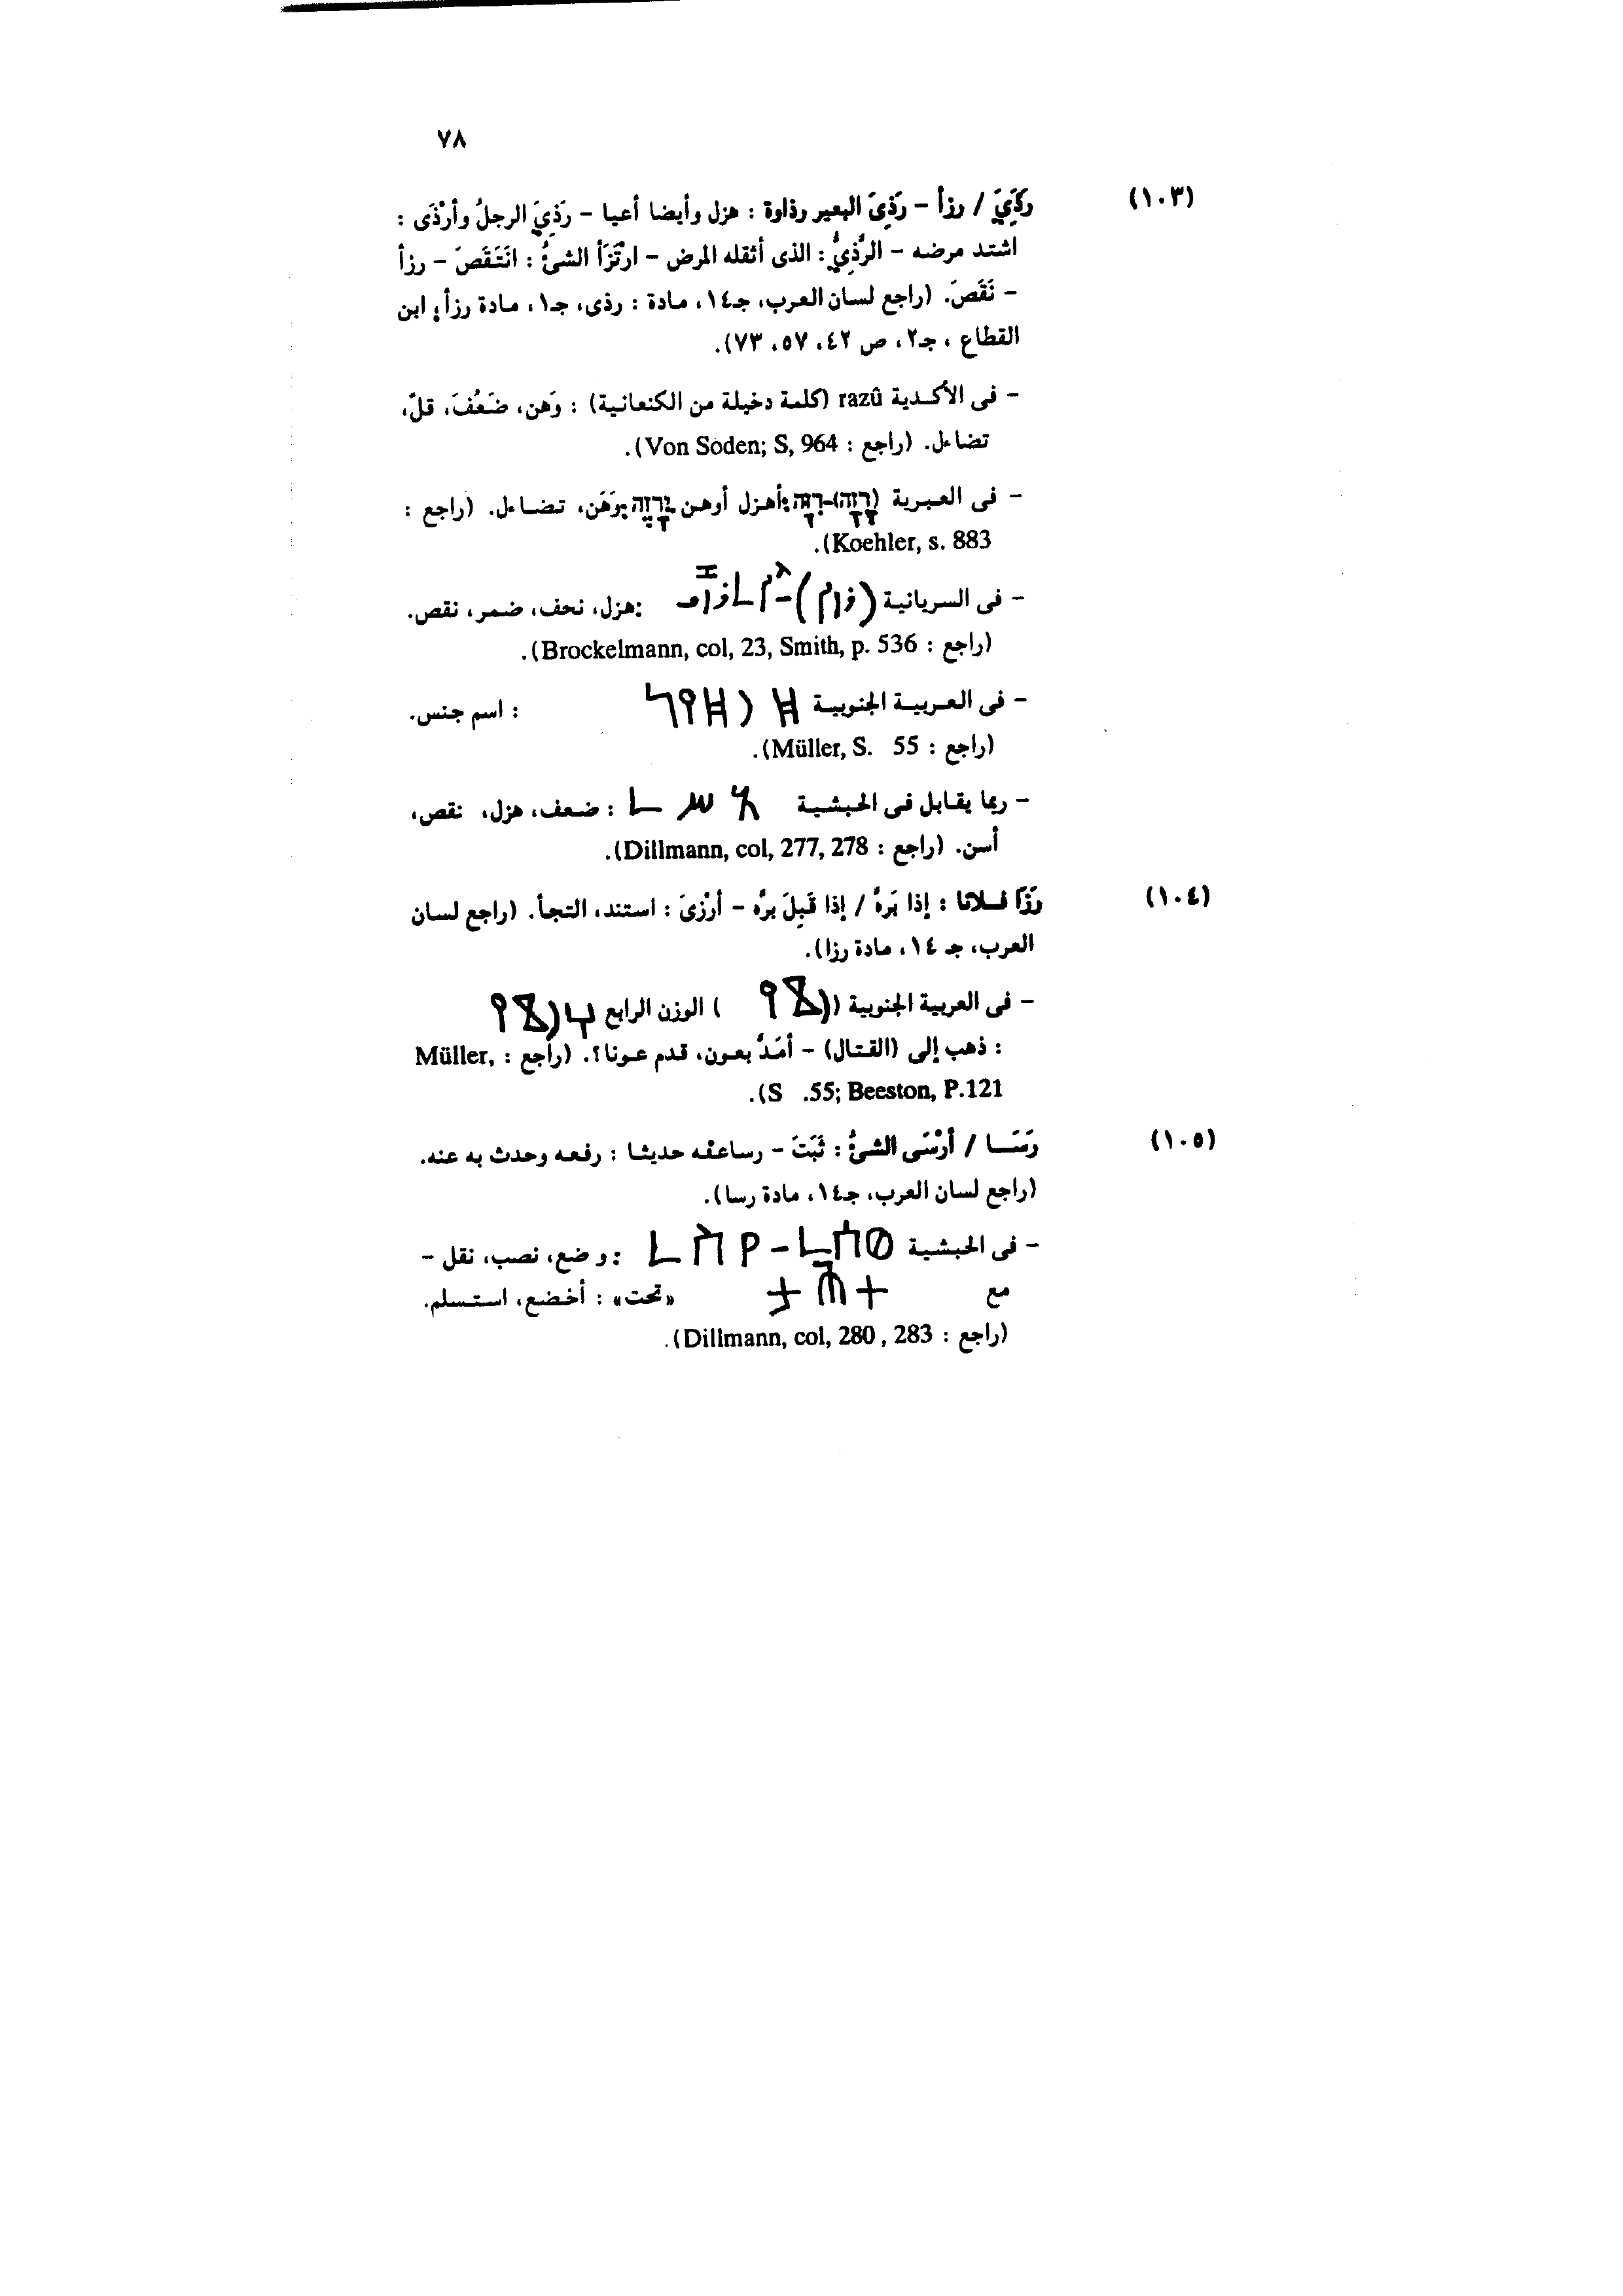 ٧٨
(١٠٣) رَذِيَ / رزأ – رَذِىَ البعير رذاوة : هزل وأيضا أعيا – رَذِيَ الرجلُ وأَرْذَى :
اشتد مرضه – الرَّذِيُّ : الذى أثقله المرض – ارْتَزَأ الشئُ : انَتَقَصَ – رزأ
– نَقَصَ. (راجع لسان العرب، جـ١٤، مادة : رذى، جـ١، مادة رزأ؛ ابن
القطاع ، جـ٢، ص ٤٢، ٥٧، ٧٣).
– فى الأكدية razû (كلمة دخيلة من الكنعانية) : وَهن، ضَعُفَ، قلّ،
تضاءل. (راجع : Von Soden; S, 964).
– فى العبرية (רזה) : أهزل أوهن : وَهَن، تضاءل. (راجع :
Koehler, s. 883).
– فى السريانية : هزل، نحف، ضمر، نقص.
(راجع : Brockelmann, col, 23, Smith, p. 536).
– فى العربية الجنوبية 𐩹𐩧𐩹𐩺𐩬 : اسم جنس.
(راجع : Müller, S. 55).
– ربما يقابل فى الحبشية : ضعف، هزل، نقص،
أسن. (راجع : Dillmann, col, 277, 278).
(١٠٤) رَزَا فلانا : إذا بَرهُ / إذا قَبِلَ برَّه – أرْزىَ : استند، التجأ. (راجع لسان
العرب، جـ ١٤، مادة رزا).
– فى العربية الجنوبية (𐩧𐩸𐩺) الوزن الرابع 𐩠𐩧𐩸𐩺
: ذهب إلى (القتال) – أمَدَّ بعون، قدم عونا؟. (راجع : Müller,
S .55; Beeston, P.121).
(١٠٥) رَسَا / أَرْسَى الشئُ : ثَبَتَ – رساعنْه حديثا : رفعه وحدث به عنه.
(راجع لسان العرب، جـ١٤، مادة رسا).
– فى الحبشية : وضع، نصب، نقل –
مع «تحت» : أخضع، استسلم.
(راجع : Dillmann, col, 280 , 283).